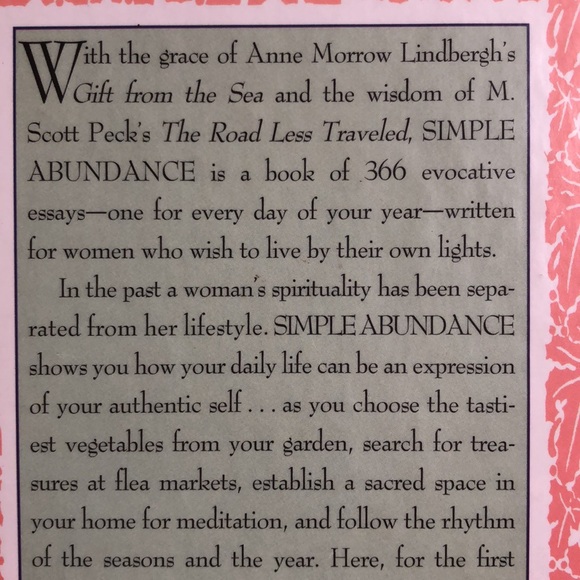 With the grace of Anne Morrow Lindbergh's
Gift from the Sea and the wisdom of M.
Scott Peck's The Road Less Traveled, SIMPLE
ABUNDANCE is a book of 366 evocative
essays—one for every day of your year—written
for women who wish to live by their own lights.
In the past a woman's spirituality has been sepa-
rated from her lifestyle. SIMPLE ABUNDANCE
shows you how your daily life can be an expression
of your authentic self . . . as you choose the tasti-
est vegetables from your garden, search for trea-
sures at flea markets, establish a sacred space in
your home for meditation, and follow the rhythm
of the seasons and the year. Here, for the first